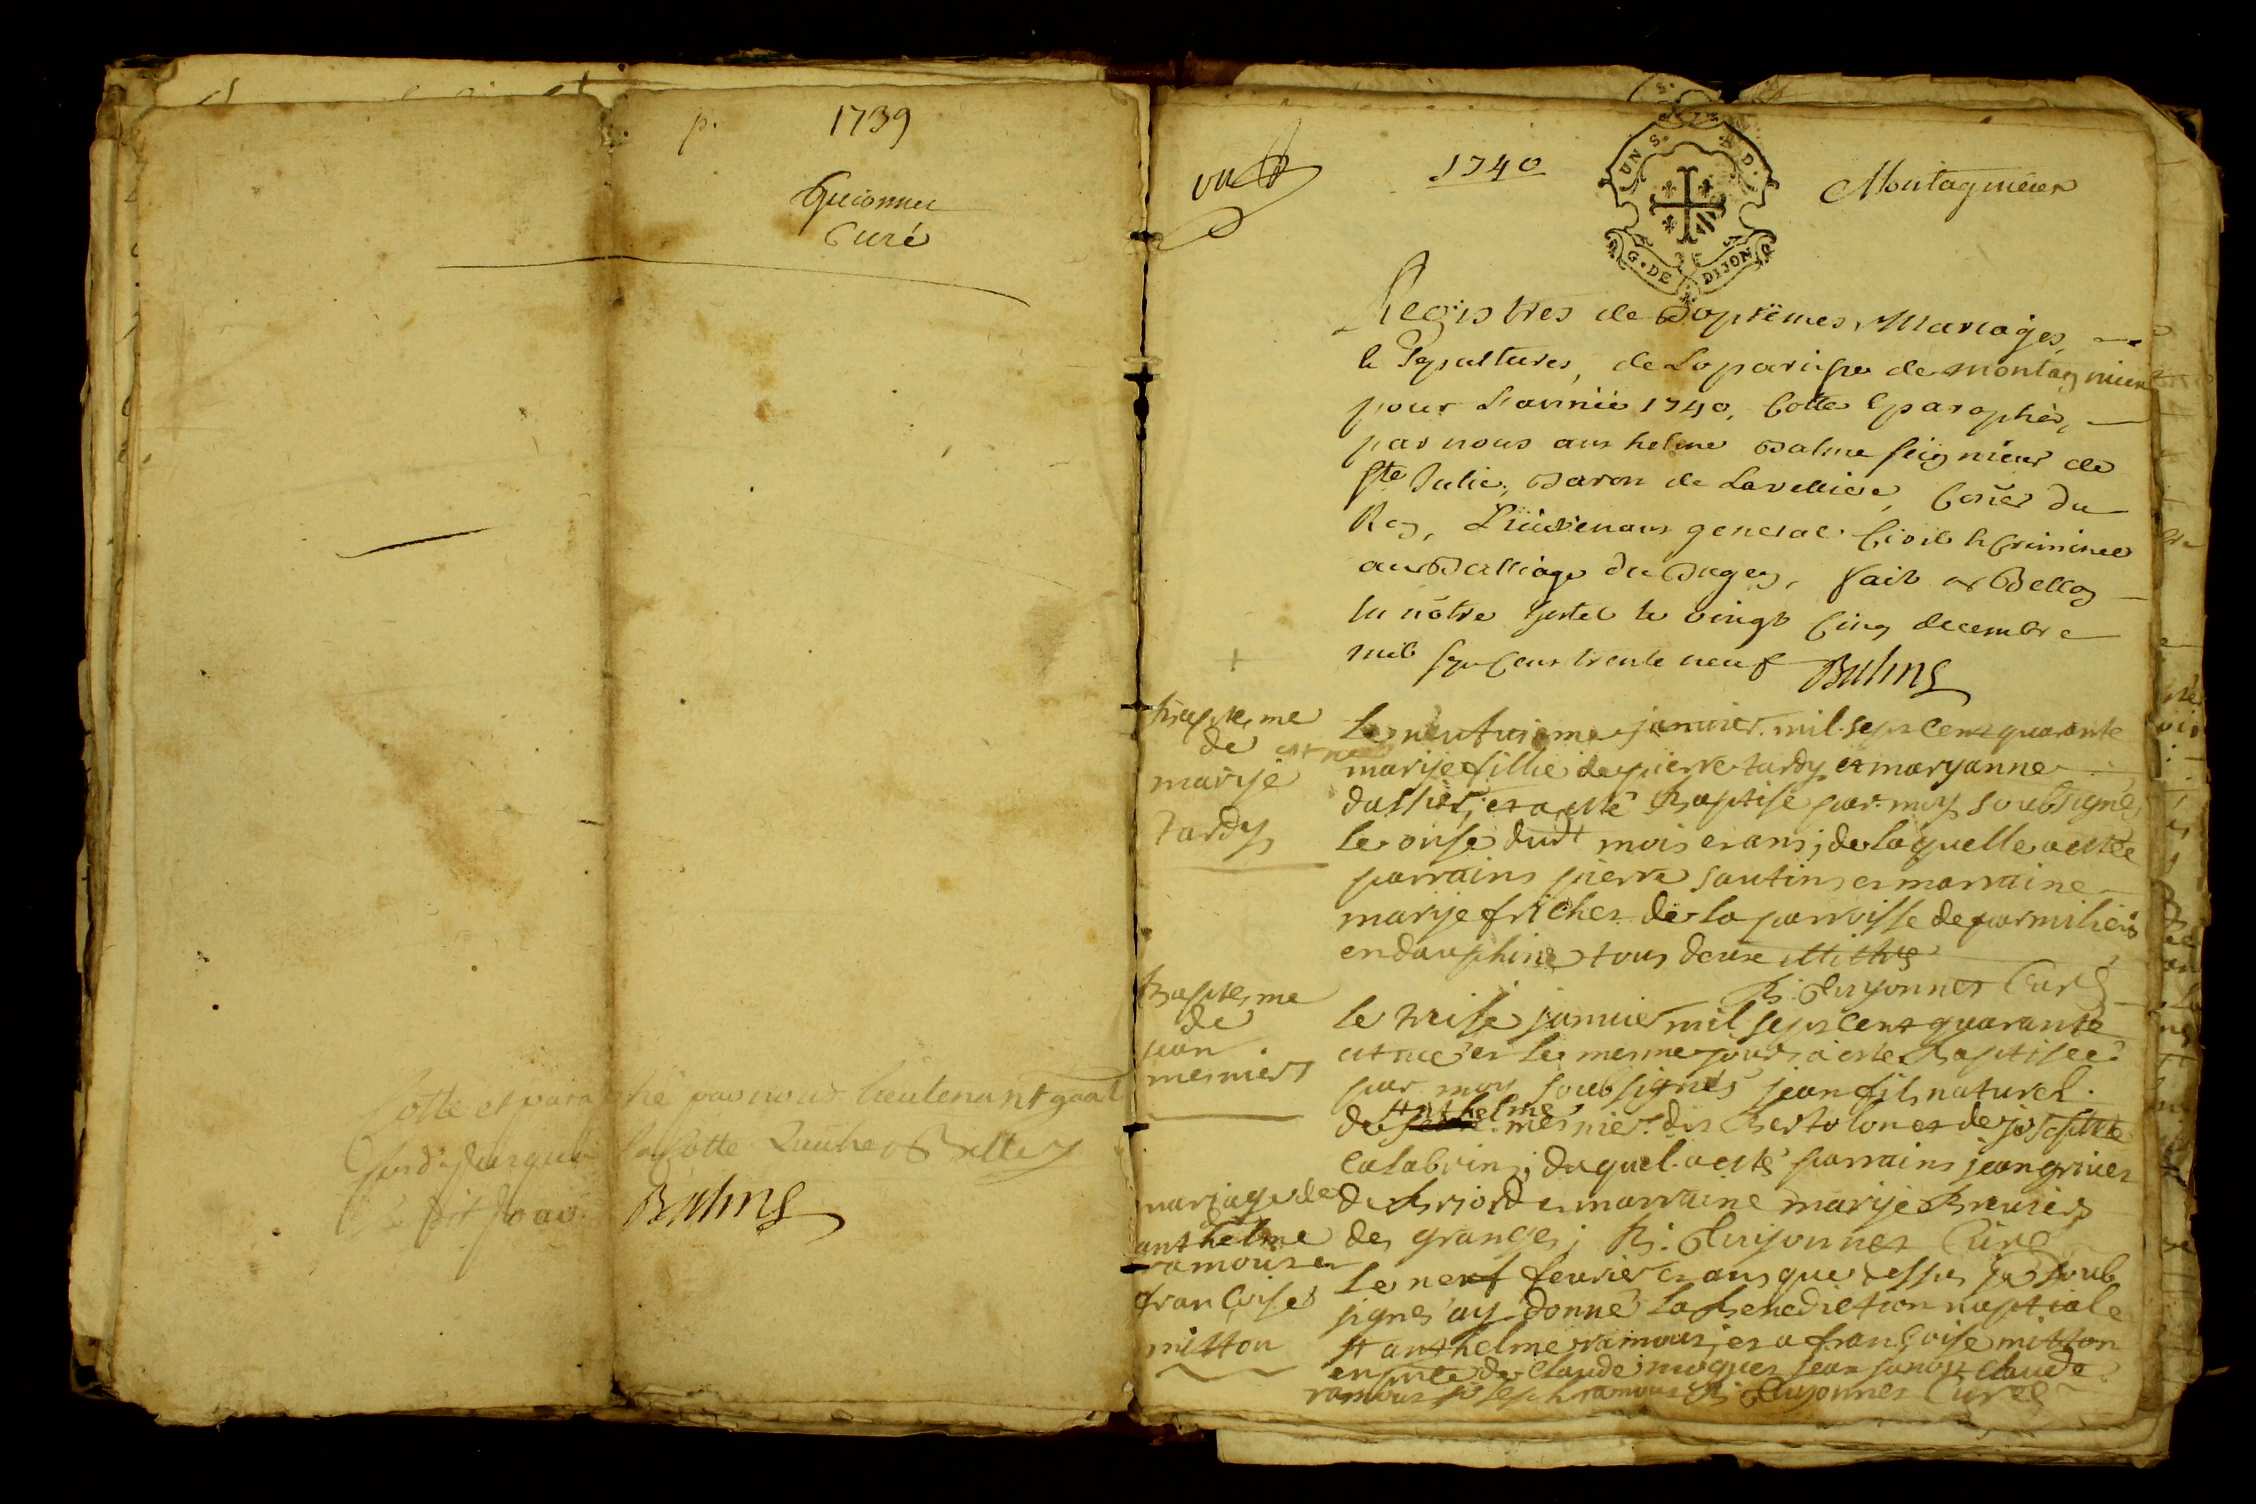 p. 1739
Guionnet
Curé
Cotte et paraphé par nous lieutenant gnal
Balme
1740
Montagnieux
UN S. A. D.
G. DE DIJON
Registres de Baptêmes, Mariages,
& Sepultures, de La parisse de montagnieux
pour L'année 1740, Cotte & paraphés,
par nous anthelme Balme seigneur de
Ste Julie, Baron de Lavelliere, Coner du
Roy, Lieutenant general Civil & Criminel
au Balliage du Bugey, fait a Belley
en nôtre hostel le vingt Cinq decembre
mil sept Cent trente neuf Balme
baptesme
de
marije
tardy
Le neufuieme januier mil sept cent quarante
est née
marije fillie de pierre tardy et maryanne
dassier, et a esté Baptisé par moy soubsigné
le onse dudt mois et ans; de laquelle a estée
parrains pierre sautin et marraine
marije friches de la parroisse de parmilieu
en dauphine tous deux
B. Guyonnet Curé
Baptesme
de
jean
mesnier
le treise januier mil sept cent quarante
est née et le mesme jour a esté Baptisée
par moy soubsignés jean fils naturel
anthelme
de mesnier dit Bertolon et de josephte
Calabrin; duquel a estés parrains jean griues
de Briord et marraine marije Breuier
des granges; B. Guyonnet Curé
mariage de
anthelme
ramous et
francoise
mitton
Le neuf feurier et ans que dessus je soub
signés ay donné la Benediction nuptiale
a anthelme ramous, et a françoise mitton
en presence de Claude moguet jean Claude
ramous joseph ramous B. Guyonnet Curé